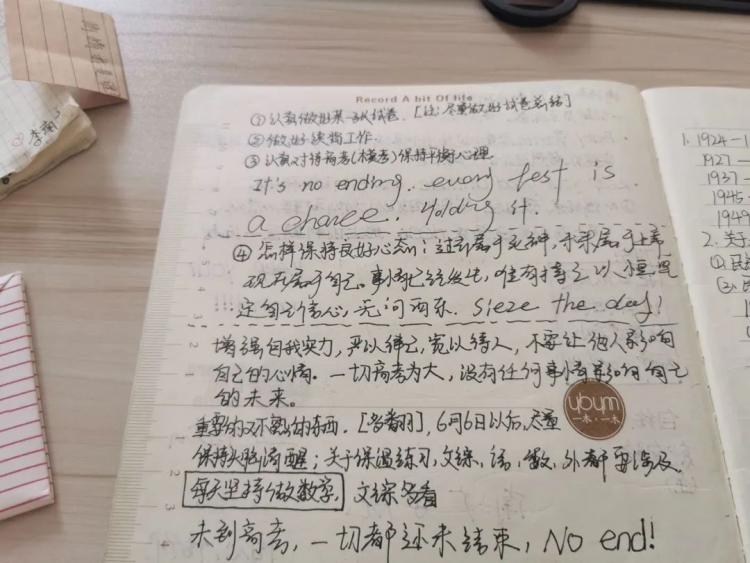 Record A bit Of life
①认真做好某一次试卷.[注:尽量做好试卷总结]
②做好续档工作.
③认真对待高考(模考)保持平衡心理
It's no ending. every test is
a chance. Holding it.
④怎样保持良好心态:过去属于死神,未来属于上帝
现在属于自己.事情已经发生,唯有持之以恒,坚
定自己信心,无问西东. Sieze the day!
增强自我实力,严以律己,宽以待人,不要让他人影响
自己的心情.一切高考为大,没有任何事情影响自己
的未来.
重要的不熟的东西.[多翻],6月6日以后,尽量
保持头脑清醒;关于保温练习,文综,语,数,外都要涉及.
每天坚持做数学. 文综多看
未到高考,一切都还未结束,No end!
yбym
一木·一木
1. 1924-1
1927-
1937-
1945-
1949
2. 关于